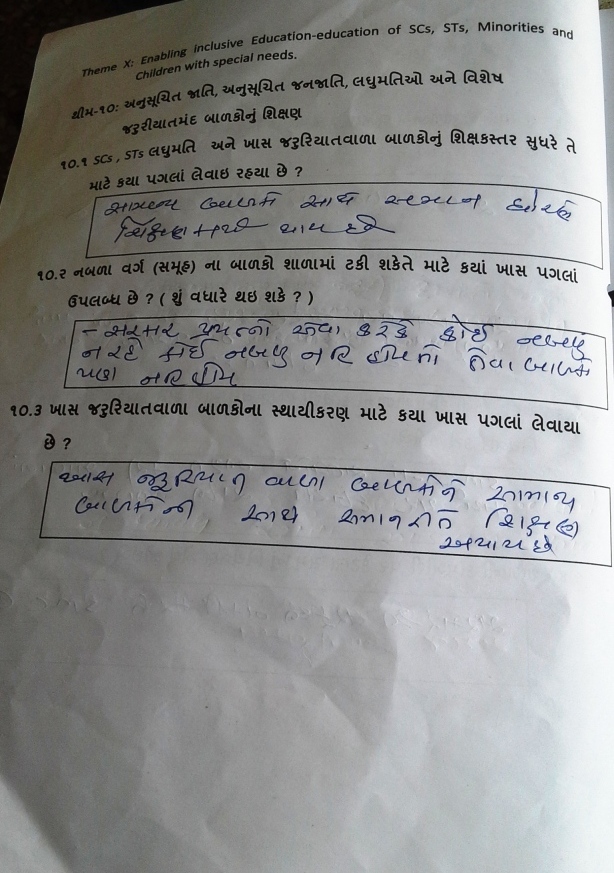 Theme X: Enabling inclusive Education-education of SCs, STs, Minorities and
Children with special needs.
થીમ-૧૦: અનુસૂચિત જાતિ, અનુસૂચિત જનજાતિ, લઘુમતિઓ અને વિશેષ
જરુરીયાતમંદ બાળકોનું શિક્ષણ
૧૦.૧ SCs , STs લઘુમતિ અને ખાસ જરુરિયાતવાળા બાળકોનું શિક્ષકસ્તર સુધરે તે
માટે કયા પગલાં લેવાઇ રહયા છે ?
સામાન્ય બાળકો સાથે સમાન ધોરણે
શિક્ષણ કાર્ય થાય છે
૧૦.૨ નબળા વર્ગ (સમૂહ) ના બાળકો શાળામાં ટકી શકેતે માટે કયાં ખાસ પગલાં
ઉપલબ્ધ છે ? ( શું વધારે થઇ શકે ? )
- સરકાર પ્રયત્નો એવા કરે કે કોઈ નબળું
ન રહે કોઈ નબળુ નહિ હોય તો તેવા બાળકો
પણ નહિ હોય
૧૦.૩ ખાસ જરુરિયાતવાળા બાળકોના સ્થાયીકરણ માટે કયા ખાસ પગલાં લેવાયા
છે ?
ખાસ જરૂરિયાત વાળા બાળકોને સામાન્ય
બાળકોની સાથે સમાન રીતે શિક્ષણ
અપાય છે